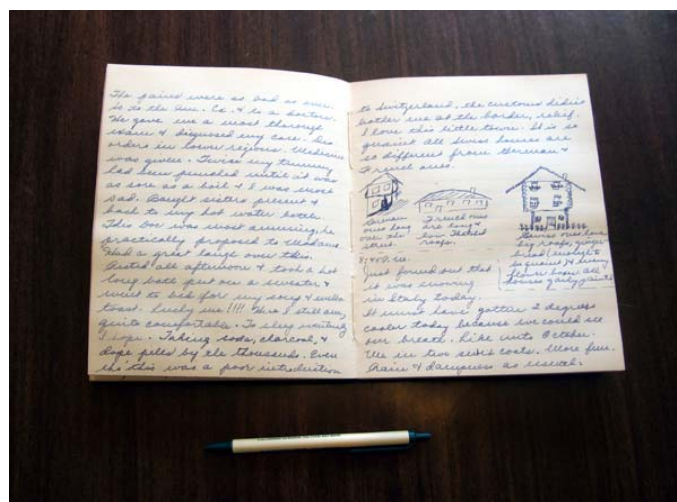 The pains were as bad as ever.
so to the Am. Ex. & to a doctor.
He gave me a most thorough
exam & diagnosed my case. Dis-
orders in lower regions. Medicine
was given. Twice my tummy
had been punched until it was
as sore as a boil & I was most
sad. Bought sisters present &
back to my hot water bottle.
This Doc was most amusing, he
practically proposed to Madame.
Had a great laugh over this.
Rested all afternoon & took a hot
long bath put on a sweater &
went to bed for my soup &
toast. Lucky me!!!! Were I still away
quite comfortable. To sleep
I hope. Taking soda, charcoal, &
dope pills by the thousands. Even
this was a poor introduction
to Switzerland, the customs didn't
bother me at the border, relief.
I love this little town. It is so
quaint all Swiss houses are
so different from German &
French ones.
German
ones hang
over the
street.
French ones
are long &
low thatched
roofs.
Swiss ones have
big roofs, ginger
bread enough to
be quaint &
flower boxes all
houses gaily painted
Just found out that
it was snowing
in Italy today.
It must have gotten 2 degrees
cooler today because we could see
our breath. Like unto October.
We in two coats. More fun.
Rain & dampness as usual.